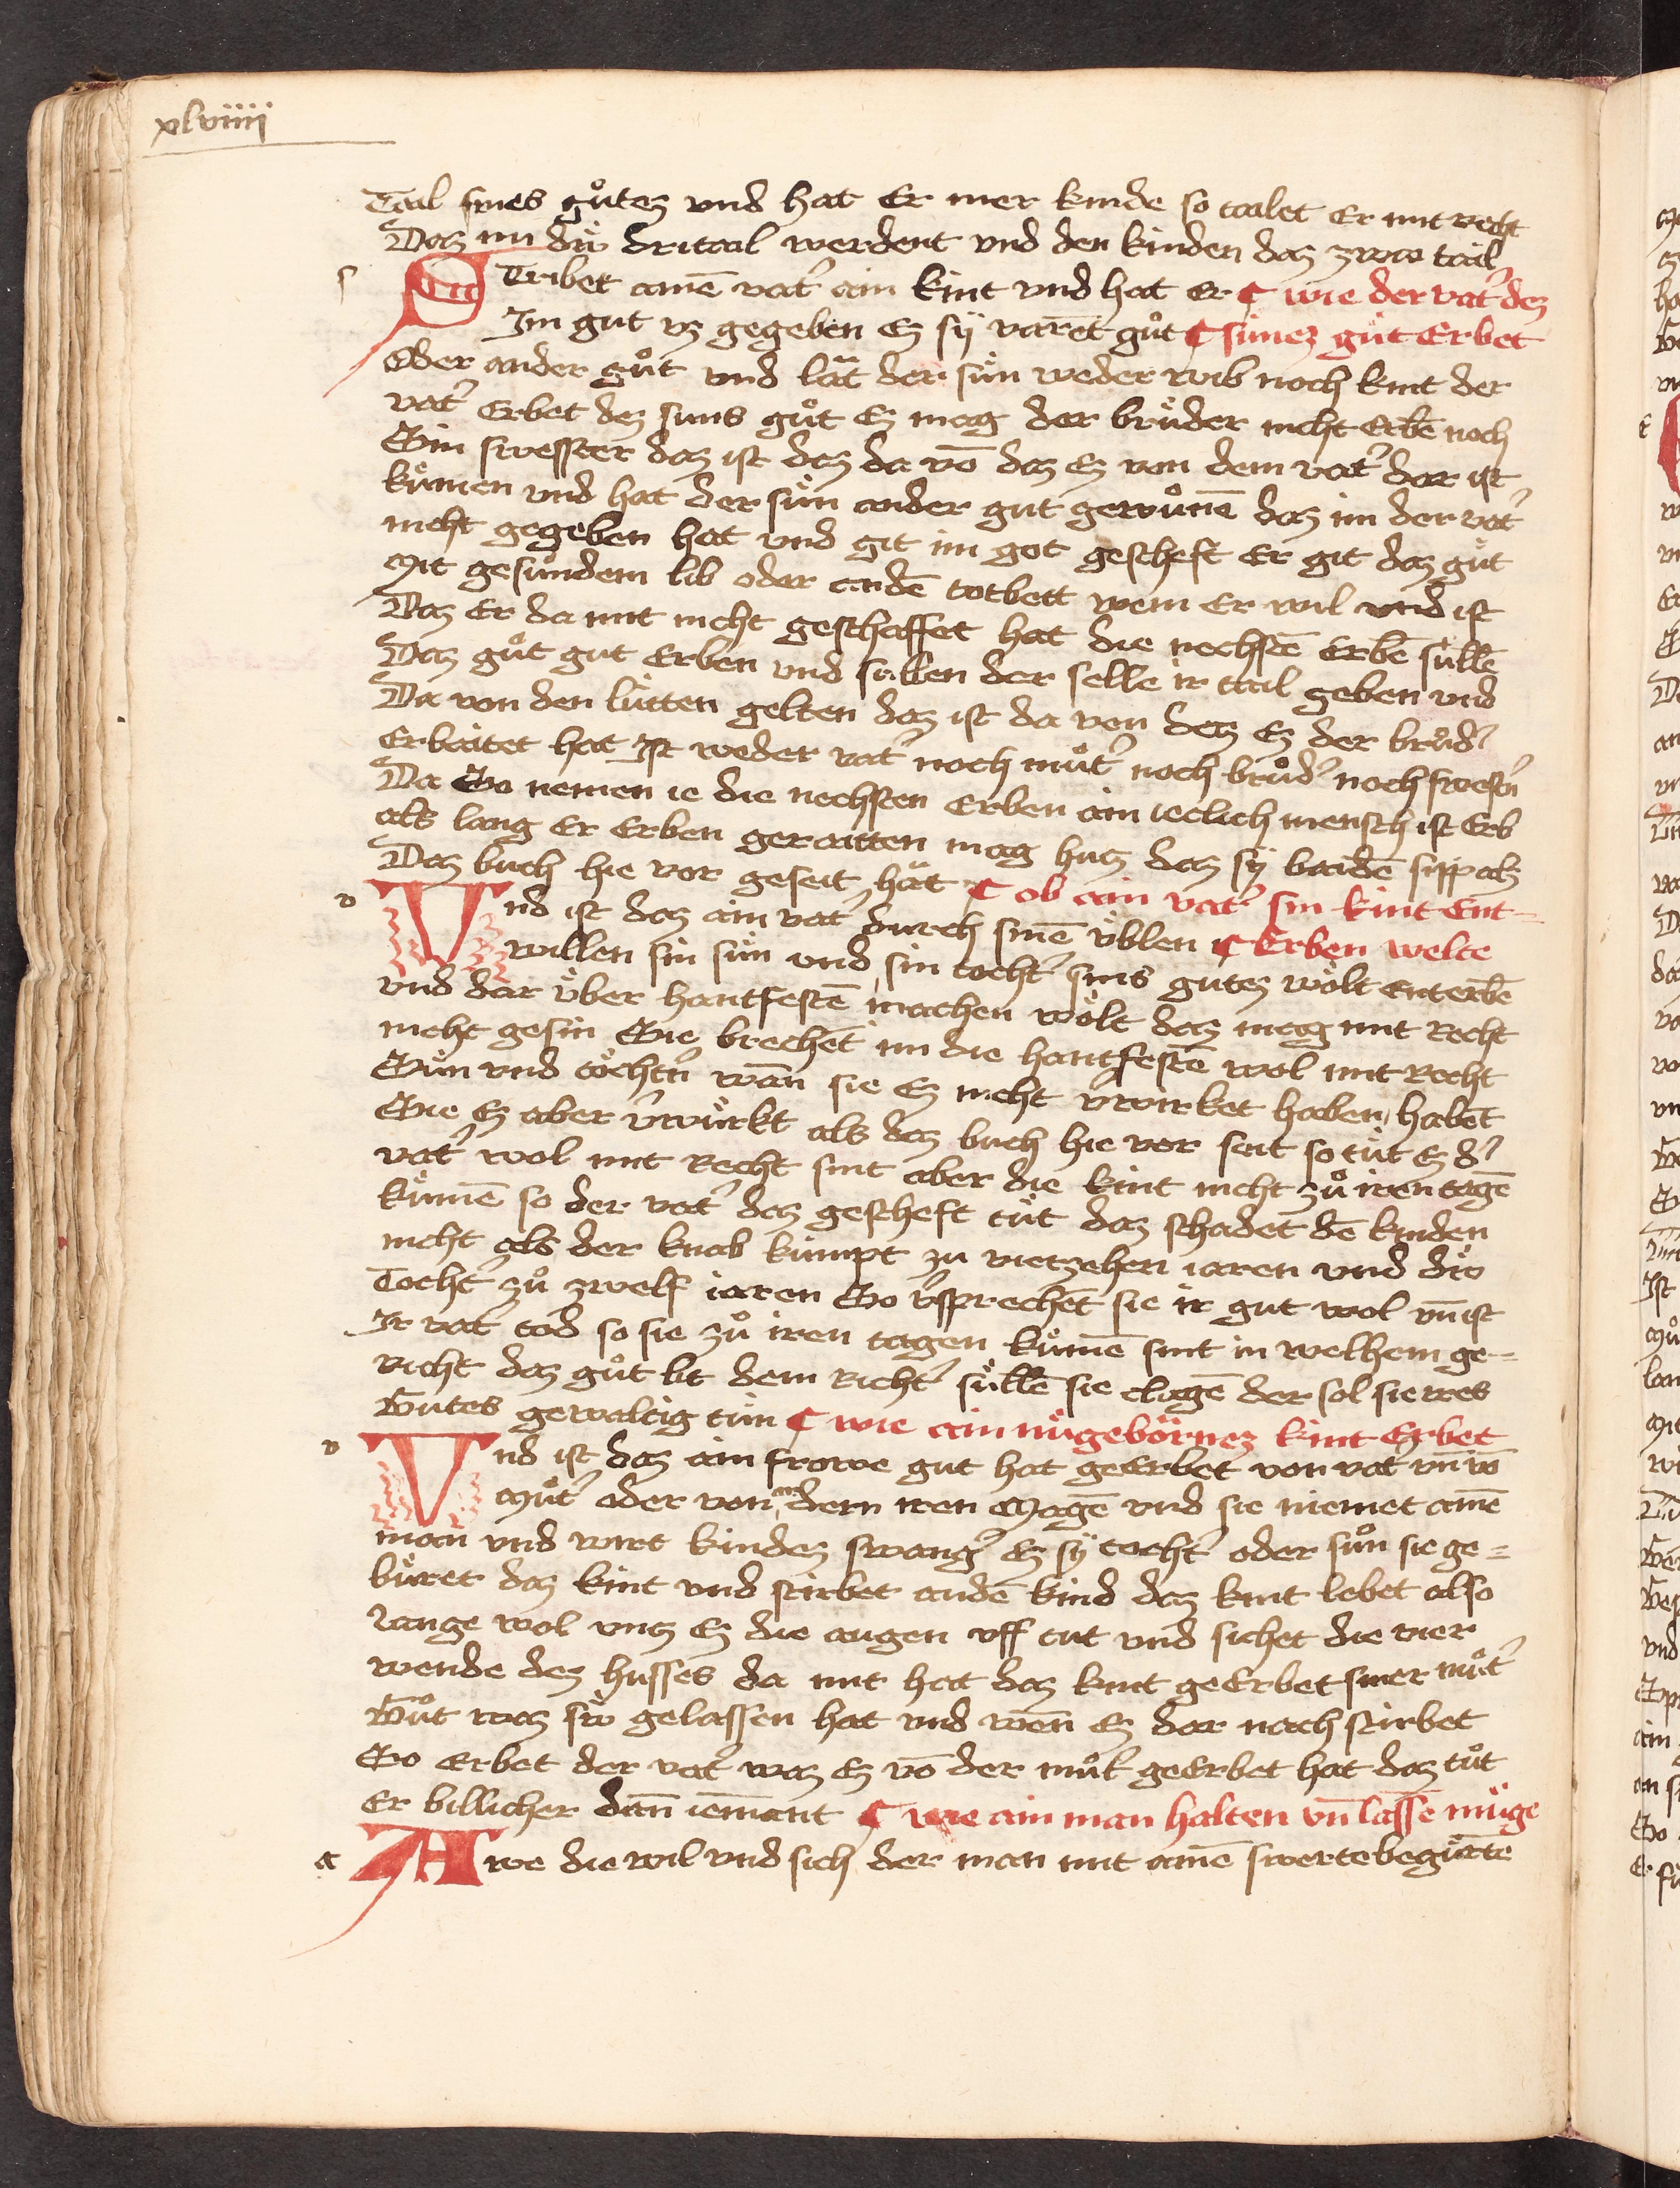 xlviiii
Tail sines gůtez vnd hat Er mer kinde so tailet Er mit recht
Daz im dü dritail werdent vnd den kinden daz zwai tail
s
STirbet aimē vat' ain kint vnd hat Er ¶ wie der vat' dez
Im gut vz gegeben Ez sÿ varēt gůt ¶ sunez gůt Erbet
Oder ander gůt vnd lät der sůn weder wib noch kint der
vat' Erbet dez suns gůt Ez mag der brůder nicht Erbē noch
Sin swesster daz ist daz da vō daz Ez von dem vat' dar ist
kůmen vnd hat der sůn ander gut gewůnē daz im der vat'
nicht gegeben hat vnd git im got gescheft Er git daz gůt
Mit gesůndem lib oder andē totbett wem Er wil vnd ist
Daz Er da mit nicht geschaffet hat die nechstē Erbē sůllē
Daz gůt gut Erben vnd sullen der selle ir tail geben vnd
Da von den lütten gelten daz ist da von daz Ez der brůd'
Erbaitet hat Ist weder vat' noch můt' noch brůd' noch swest'n
Da So nemen ie die nechsten Erben ain ieclich mensch ist Erb
als lang Er Erben geraitten mag huz daz sÿ baidē sipp alz
Daz buch hie vor geseit hät ¶ ob ain vat' sin kint Ent-
v
Vnd ist daz ain vat' durch sinē üblen ¶ Erben welte
willen sin sůn vnd sin tocht' sins gutez wölt Enterbē
vnd dar über hantfestē machen wölt daz mag mit Recht
nicht gesin Sie brechēt im die hantfestē wol mit Recht
Sůn vnd töcht'n wān sie Ez nicht v'wirket haben habēt
Sie Ez aber v'würkt als daz buch hie vor seit so tůt Ez d'
vat' wol mit Recht sint aber die kint nicht zů iren tagē
kůmē so der vat' daz gescheft tůt daz schadet dē kinden
nicht als der knab kůmpt zu vierzehen iaren vnd diw
Tocht' zů zwelf iaren So v'sprechēt sie ir gut wol vn̄ ist
Ir vat' tod so sie zů iren tagen kůmē sint in welhem ge-
richt daz gůt lit dem Richt' süllē sie clagē der sol sie ires
Gutes gewaltig tůn ¶ wie ain nügebörnez kint Erbet
v
Vnd ist daz ain frowe gut hat geErbet von vat' vn̄ vō
Můt' oder von andern iren Magē vnd sie niemet ainē
man vnd wirt kindez swang' Ez sÿ tocht' oder sůn sie ge-
büret daz kint vnd stirbet andē kind daz kint lebet also
lange wol vntz Ez die augen vff tut vnd sichet die vier
wende dez husses da mit hat daz kint geErbet siner můt'
Gůt waz siw gelassen hat vnd wen̄ Ez dar nach stirbet
So Erbet der vat' waz Ez vō der můt' geErbet hat daz tůt
Er billicher dan̄ iemant ¶ wie ain man halten vn̄ lassē müge
a
Awe die wil vnd sich der man mit ainē swerte begürtē